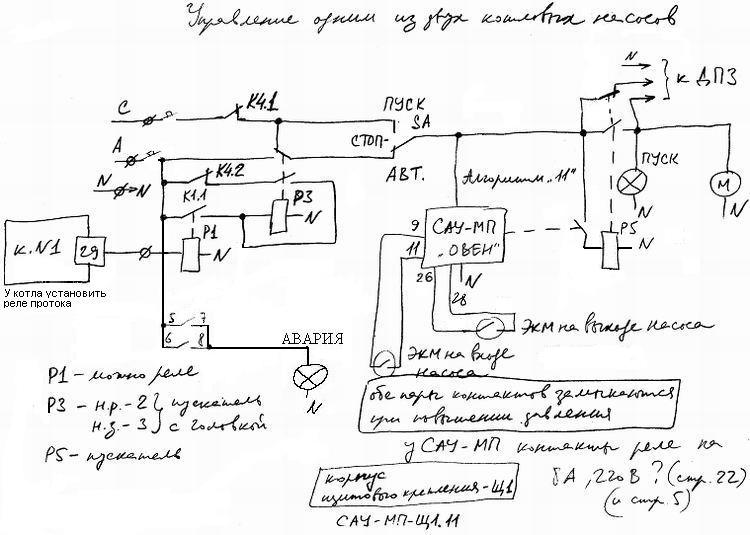 Управление одним из двух котловых насосов
N
к ДПЗ
С
К4.1
ПУСК
SA
СТОП-
А
АВТ.
N
N
К4.2
К1.1
Р3
N
Алгоритм „11"
ПУСК
М
N
N
к.N1
29
Р1
N
9
11
САУ-МП
"ОВЕН"
Р5
N
26
28
N
У котла установить
реле протока
5
7
6
8
АВАРИЯ
N
ЭКМ на выходе насоса
ЭКМ на входе
насоса
Р1 - можно реле
Р3 - н.р. - 2 } пускатель
н.з. - 3 } с головкой
Р5 - пускатель
обе пары контактов замыкаются
при повышении давления
у САУ-МП контакты реле на
8А, 220В ? (стр. 22)
(и стр. 5)
корпус
щитового крепления - Щ1
САУ-МП-Щ1.11